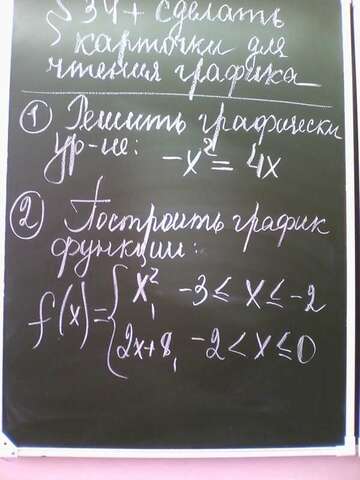 34 + сделать
карточки для
чтения графика
① Решить графически
ур-ие: -x² = 4x
② Построить график
функции:
f(x) = { x², -3 ≤ x ≤ -2
2x+8, -2 < x ≤ 0